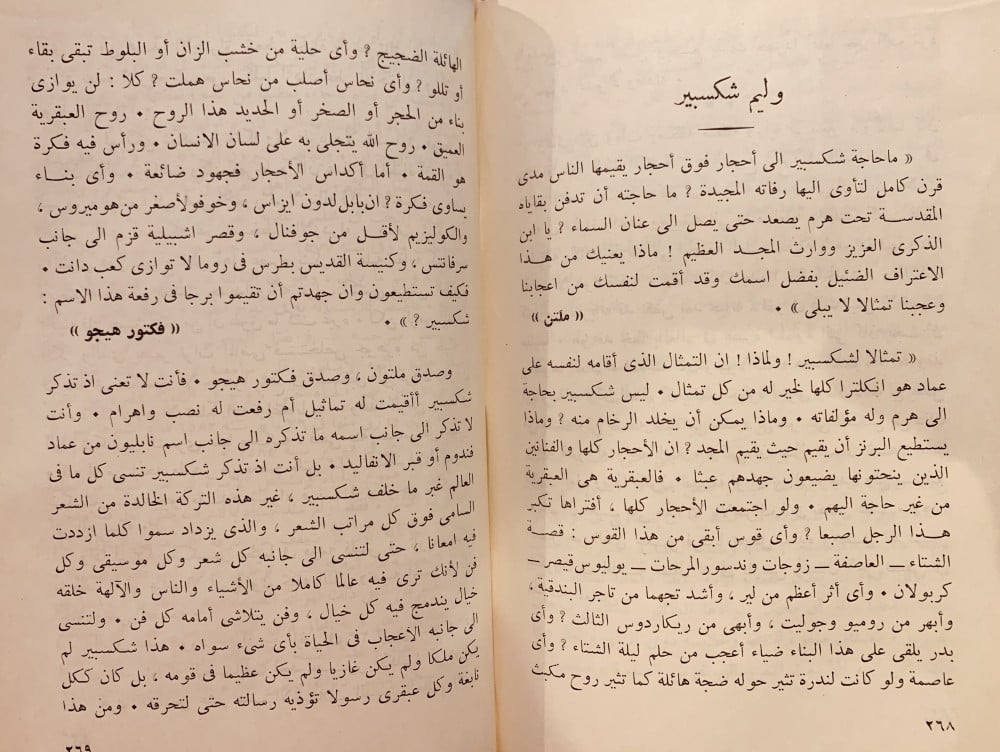 وليم شكسبير
« ماحاجة شكسبير الى أحجار فوق أحجار يقيمها الناس مدى
قرن كامل لتأوى اليها رفاته المجيدة ? ما حاجته أن تدفن بقاياه
المقدسة تحت هرم يصعد حتى يصل الى عنان السماء ? يا ابن
الذكرى العزيز ووارث المجد العظيم ! ماذا يعنيك من هذا
الاعتراف الضئيل بفضل اسمك وقد أقمت لنفسك من اعجابنا
وعجبنا تمثالا لا يبلى » . « ملتن »
« تمثالا لشكسبير ! ولماذا ! ان التمثال الذى أقامه لنفسه على
عماد هو انكلترا كلها لخير له من كل تمثال . ليس شكسبير بحاجة
الى هرم وله مؤلفاته . وماذا يمكن أن يخلد الرخام منه ? وماذا
يستطيع البرنز أن يقيم حيث يقيم المجد ? ان الأحجار كلها والفنانين
الذين ينحتونها يضيعون جهدهم عبثا . فالعبقرية هى العبقرية
من غير حاجة اليهم . ولو اجتمعت الأحجار كلها ، أفتراها تكبر
هذا الرجل اصبعا ? وأى قوس أبقى من هذا القوس : قصة
الشتاء — العاصفة — زوجات وندسور المرحات — يوليوس قيصر —
كربولان . وأى أثر أعظم من لير ، وأشد تجهما من تاجر البندقية ،
وأبهر من روميو وجوليت ، وأبهى من ريكاردوس الثالث ? وأى
بدر يلقى على هذا البناء ضياء أعجب من حلم ليلة الشتاء ? وأى
عاصمة ولو كانت لندرة تثير حوله ضجة هائلة كما تثير روح مكبث
٢٦٨
الهائلة الضجيج ? وأى حلية من خشب الزان أو البلوط تبقى بقاء
أو تللو ? وأى نحاس أصلب من نحاس هملت ? كلا : لن يوازى
بناء من الحجر أو الصخر أو الحديد هذا الروح . روح العبقرية
العميق . روح الله يتجلى به على لسان الانسان . ورأس فيه فكرة
هو القمة . أما أكداس الأحجار فجهود ضائعة . وأى بناء
يساوى فكرة ? ان بابل لدون ايزاس ، وخوفو لأصغر من هوميروس ،
والكوليزيم لأقل من جوفنال ، وقصر اشبيلية قزم الى جانب
سرفانتس ، وكنيسة القديس بطرس فى روما لا توازى كعب دانت .
فكيف تستطيعون وان جهدتم أن تقيموا برجا فى رفعة هذا الاسم :
شكسبير ? » . « فكتور هيجو »
وصدق ملتون ، وصدق فكتور هيجو . فأنت لا تعنى اذ تذكر
شكسبير أأقيمت له تماثيل أم رفعت له نصب واهرام . وأنت
لا تذكر الى جانب اسمه ما تذكره الى جانب اسم نابليون من عماد
فندوم أو قبر الانفاليد . بل أنت اذ تذكر شكسبير تنسى كل ما فى
العالم غير ما خلف شكسبير ، غير هذه التركة الخالدة من الشعر
السامى فوق كل مراتب الشعر ، والذى يزداد سموا كلما ازددت
فيه امعانا ، حتى لتنسى الى جانبه كل شعر وكل موسيقى وكل
فن لأنك ترى فيه عالما كاملا من الأشياء والناس والآلهة خلقه
خيال يندمج فيه كل خيال ، وفن يتلاشى أمامه كل فن . ولتنسى
الى جانبه الأعجاب فى الحياة بأى شىء سواه . هذا شكسبير لم
يكن ملكا ولم يكن غازيا ولم يكن عظيما فى قومه ، بل كان ككل
نابغة وكل عبقرى رسولا تؤذيه رسالته حتى لتحرقه . ومن هذا
٢٦٩